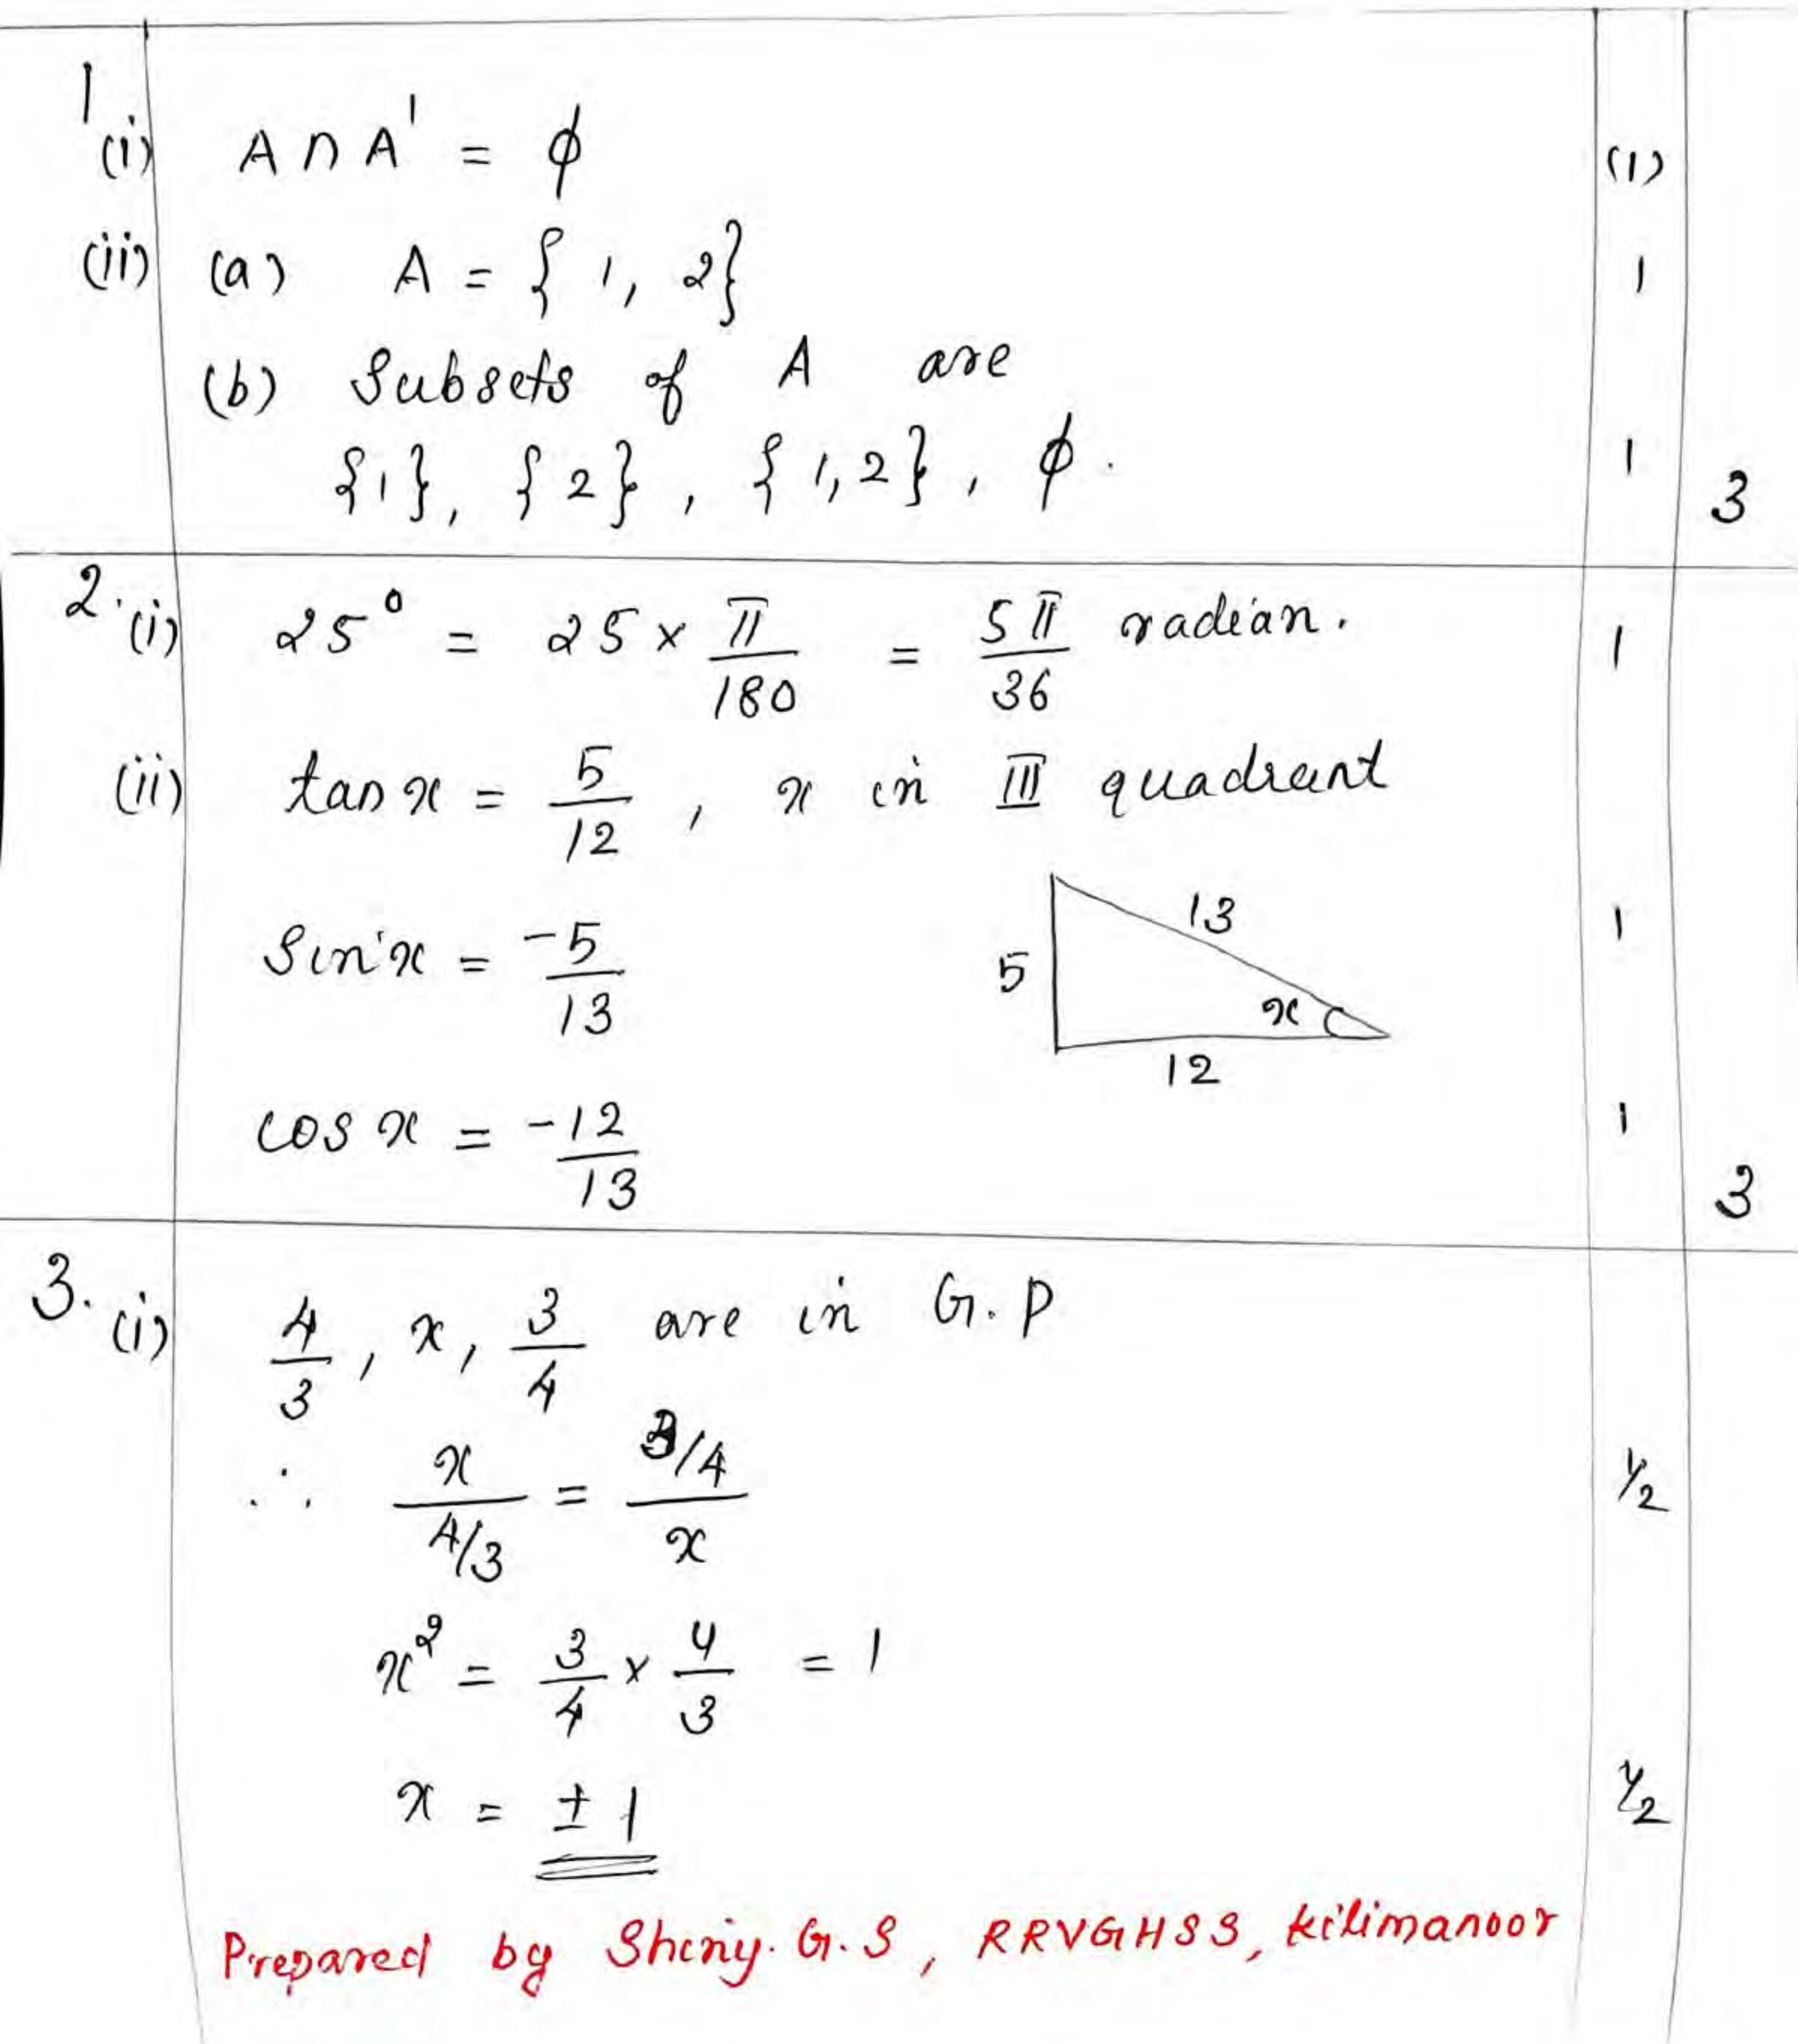 1
(i) A ∩ A' = φ (1)
(ii) (a) A = { 1, 2} 1
(b) Subsets of A are
{1}, {2}, {1,2}, φ. 1 3
2.(i) 25° = 25 × π/180 = 5π/36 radian. 1
(ii) tan x = 5/12, x in III quadrant
Sin x = -5/13 1
13
5
x
12
cos x = -12/13 1
3
3. (i) 4/3, x, 3/4 are in G.P
∴ x/(4/3) = (3/4)/x 1/2
x² = 3/4 × 4/3 = 1
x = ± 1 1/2
Prepared by Shiny. G. S, RRVGHSS, kilimanoor